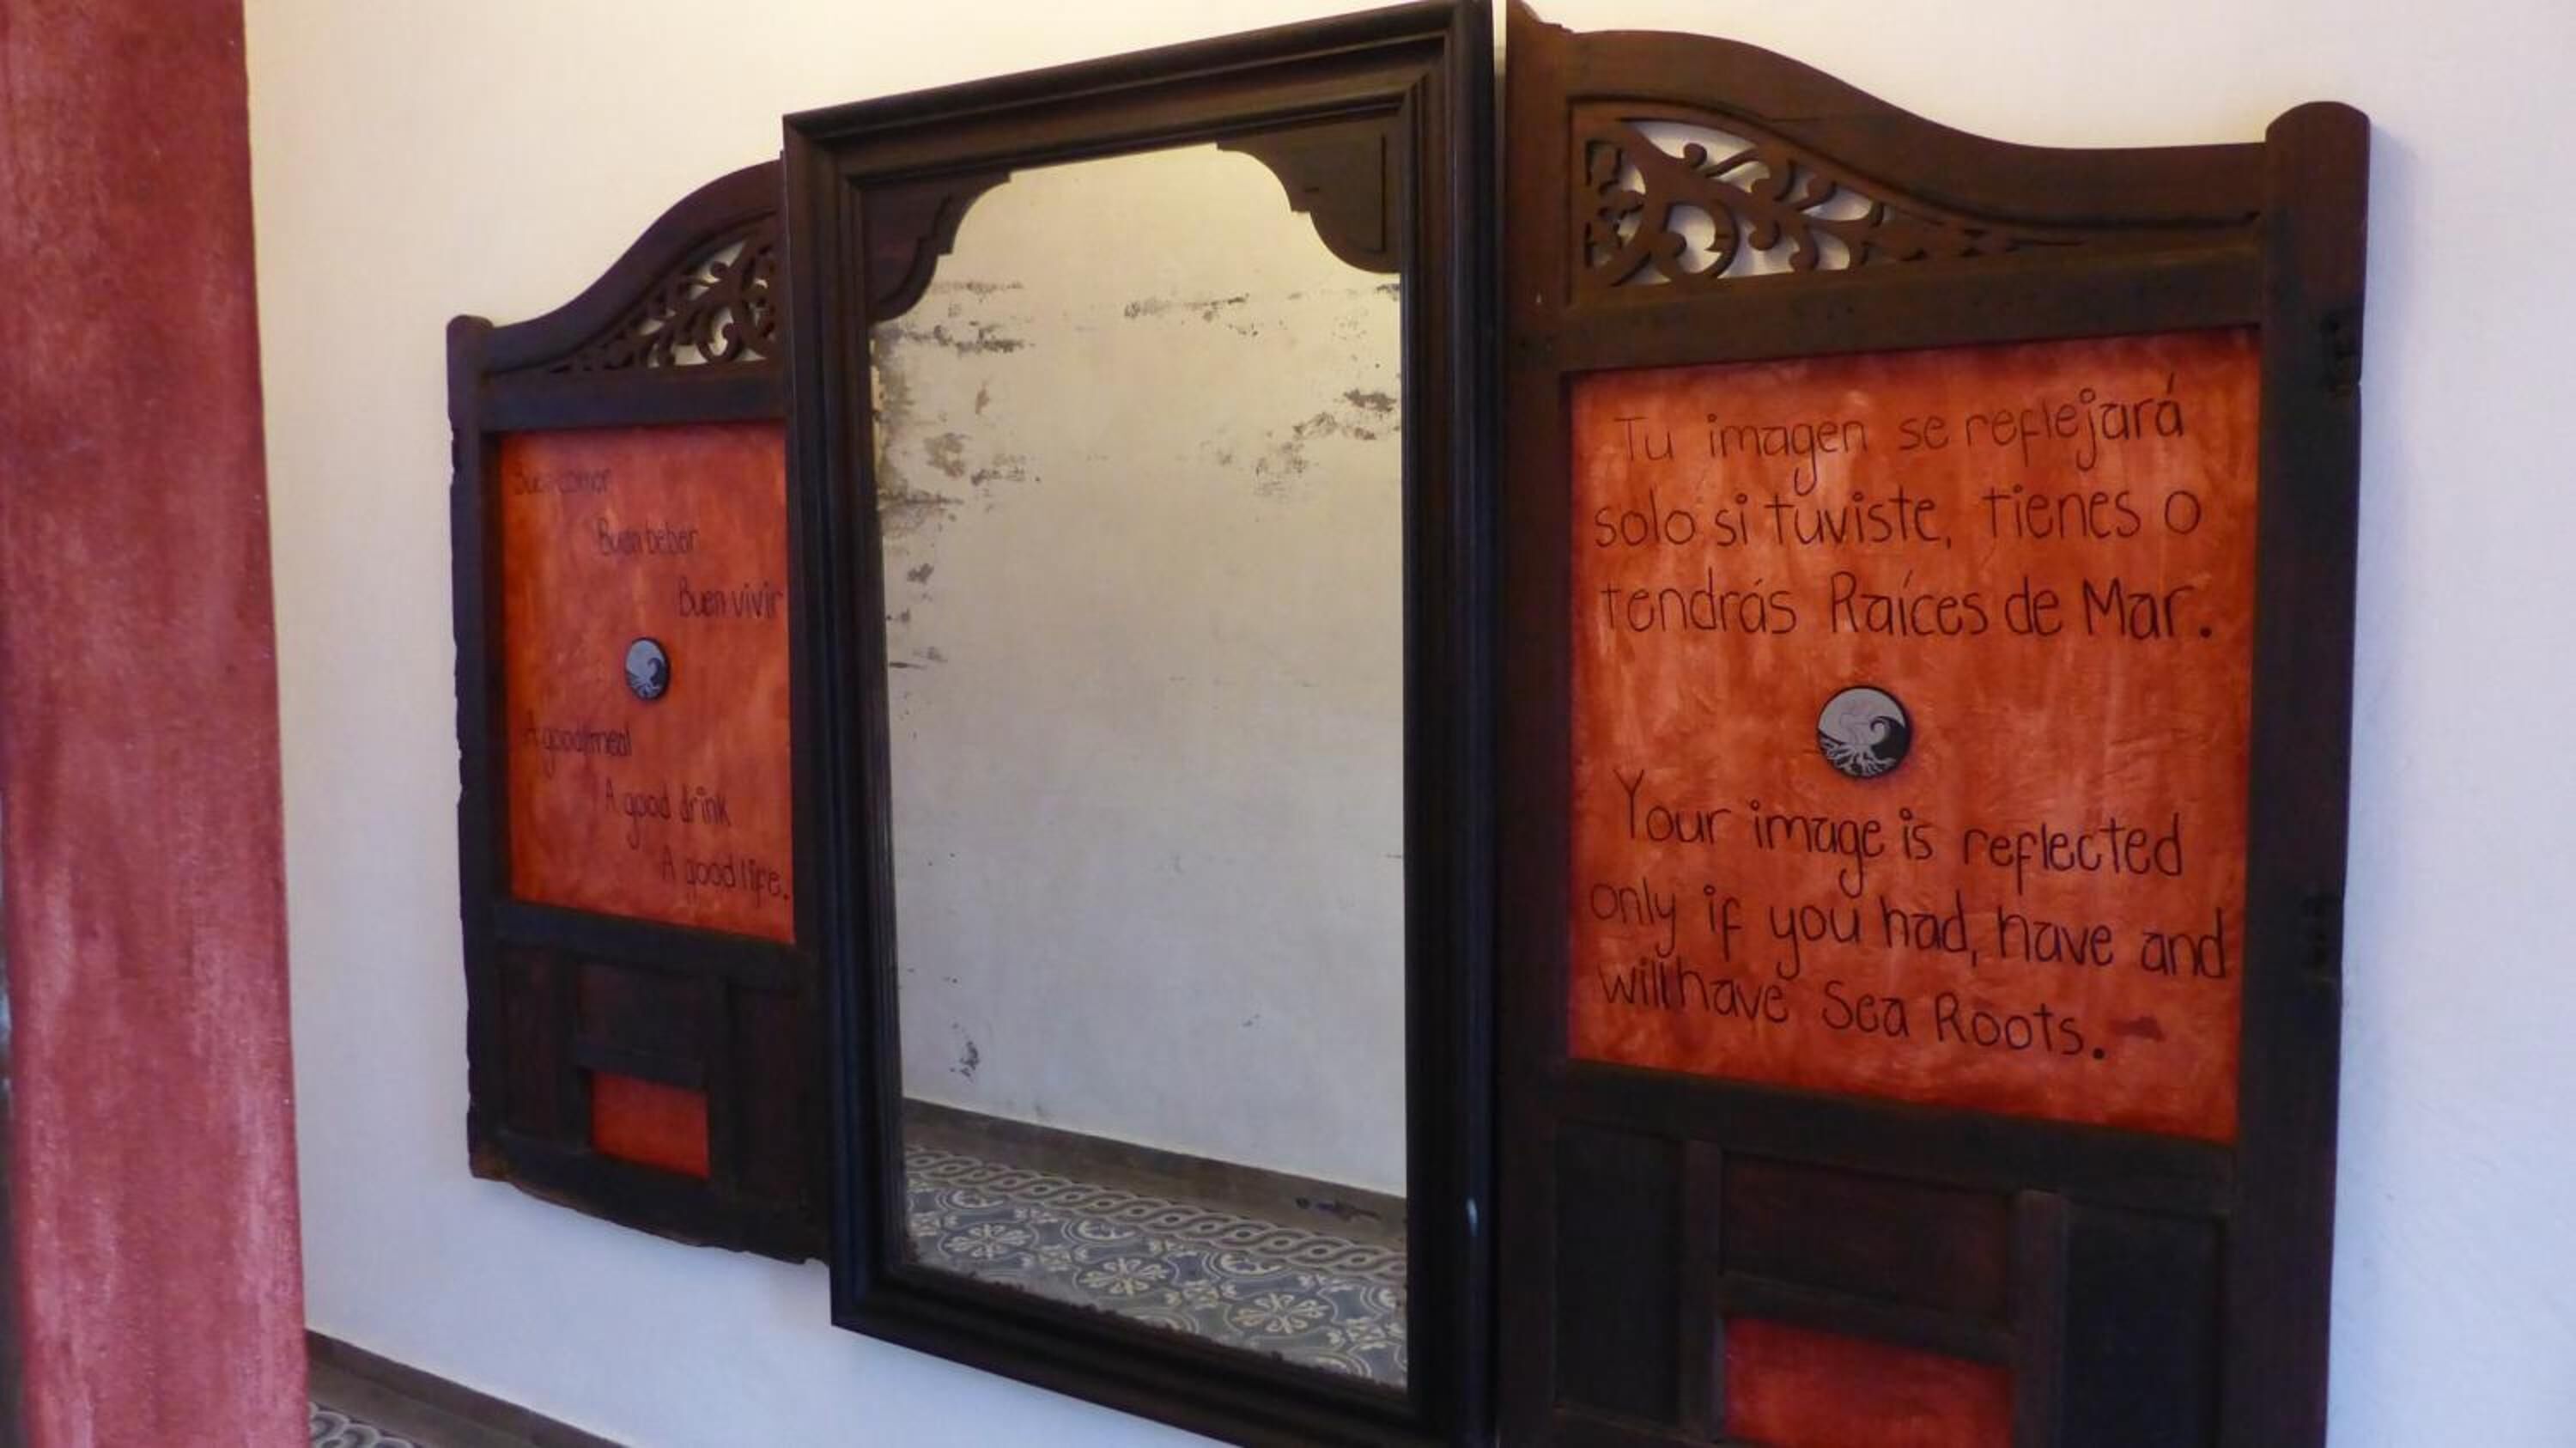 Buen comer
Buen beber
Buen vivir
A good meal
A good drink
A good life.
Tu imagen se reflejará
solo si tuviste, tienes o
tendrás Raíces de Mar.
Your image is reflected
only if you had, have and
will have Sea Roots.